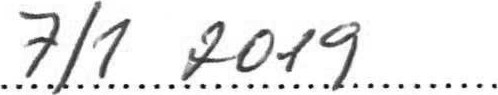 7/1 2019